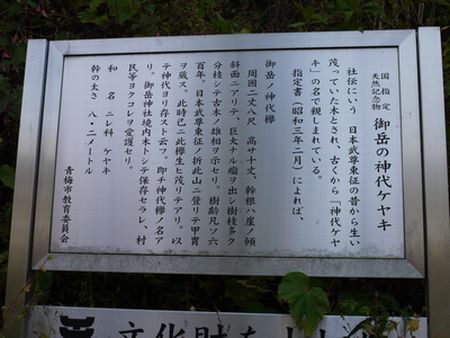 国指定
天然記念物
御岳の神代ケヤキ
社伝にいう 日本武尊東征の昔から生い
茂っていた木とされ、古くから「神代ケヤ
キ」の名で親しまれている。
指定書（昭和三年二月）によれば、
御岳ノ神代欅
周囲二丈八尺 高サ十丈、幹根ハ崖ノ傾
斜面ニアリテ、巨大ナル瘤ヲ出シ樹枝多ク
分枝シテ古木ノ雄相ヲ示セリ。樹齢凡ソ六
百年。日本武尊東征ノ折此山ニ登リテ甲冑
ヲ蔵ス。此時已ニ此欅生ヒ茂リテアリ。以
テ神代ヨリ存スト云フ。即チ神代欅ノ名ア
リ。御岳神社境内木トシテ保存セラレ、村
民等ヨクコレヲ愛護セリ。
和 名 ニレ科 ケヤキ
幹の太さ 八・二メートル
青梅市教育委員会
文化財を